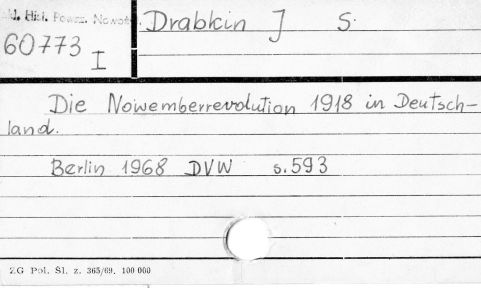 Hist. Powsz. Nowoż.
60773 I
Drabkin J S.
Die Nowemberrevolution 1918 in Deutsch-
land.
Berlin 1968 DVW s.593
ZG Pol. Śl. z. 365/69. 100 000